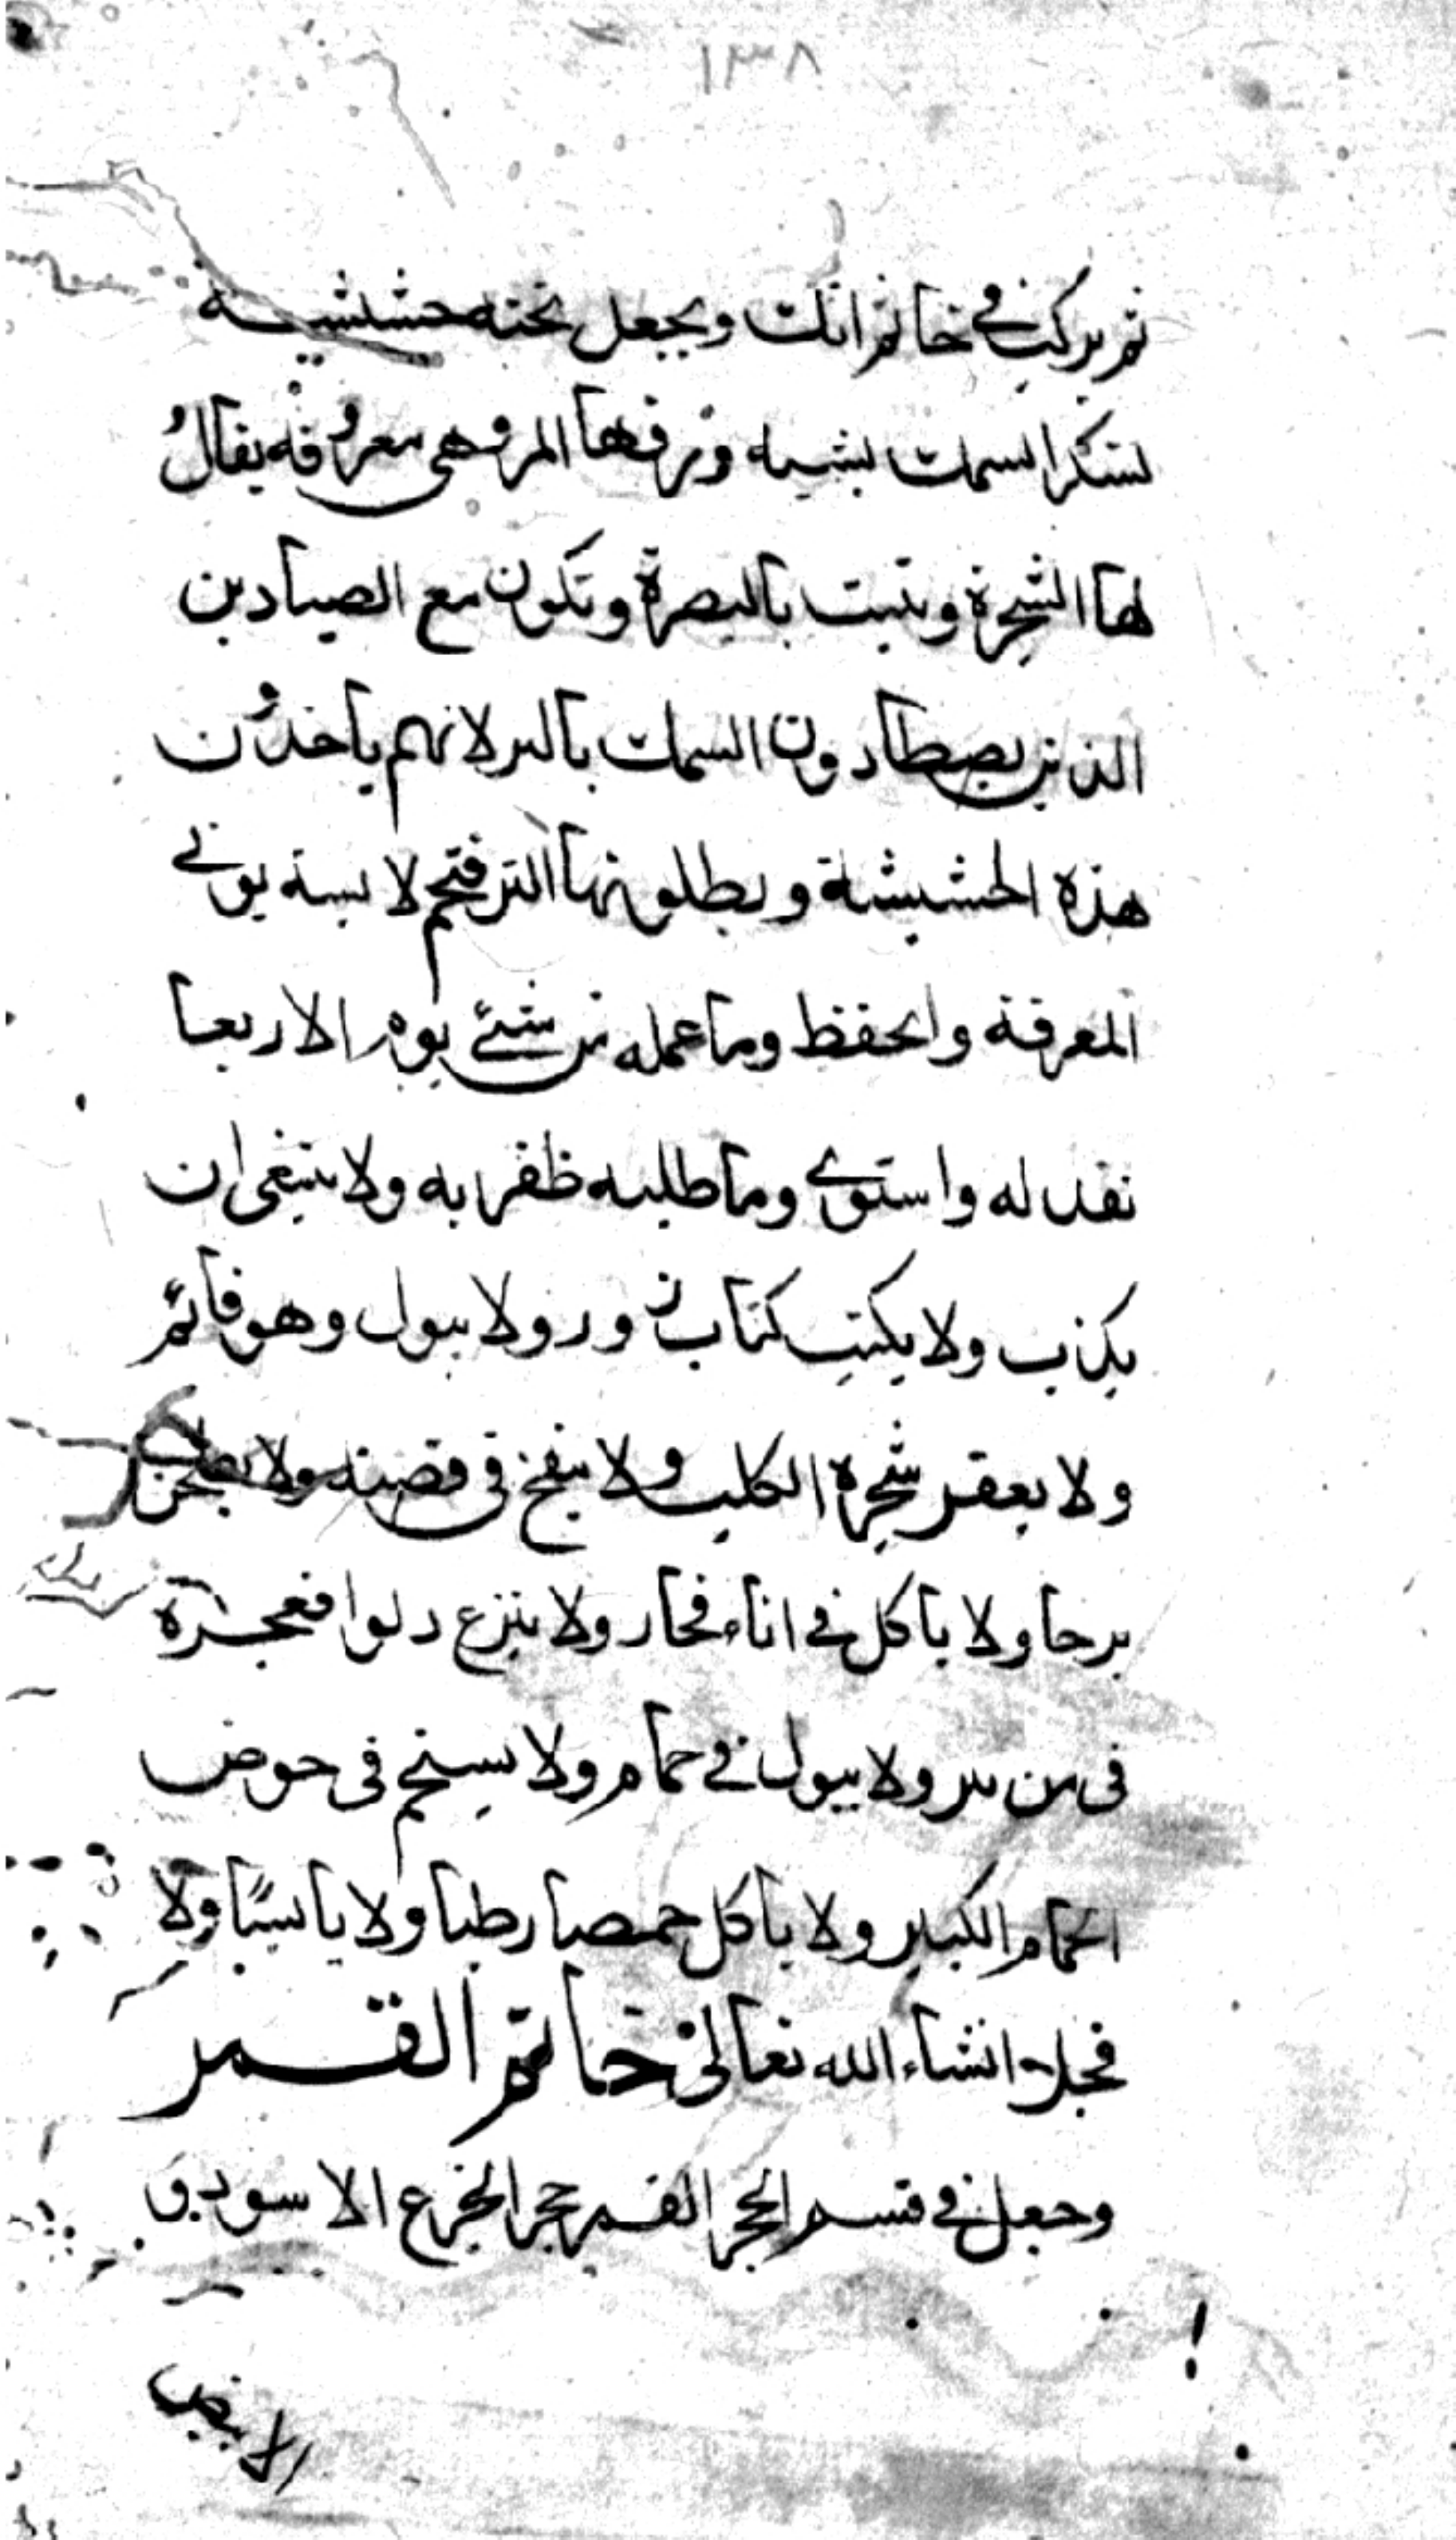 ١٣٨
ثم يركب في خاتم انك ويجعل تحته حشيشة
تسكر السمك بشبه ورقها المر وهي معروفه يقال
لها الشجرة وتنبت بالبصرة وتكون مع الصيادين
الذين يصطادون السمك بالبر لانهم ياخذون
هذه الحشيشة و يطلونها لابسه يوتى
المعرفة والحفظ وما عمله من شئ يوم الاربعا
نفد له واستوى وما طلبه ظفر به ولا ينبغى ان
يكذب ولا يكتب كتاب زور ولا يبول وهو قائم
ولا يعقر شجرة الكلب ولا ينفخ فى قصبة ولا يطحن
برحا ولا ياكل في اناء فخار ولا ينزع دلوا
فى من بير ولا يبول في حمام ولا يسنحم فى حوض
الحمام الكبير ولا ياكل حمصا رطبا ولا يابسًا ولا
فجلا انشاء الله تعالى خاتم القمر
وجعل في قسم الحجر القمر حجر الجزع الاسود و
الابيض